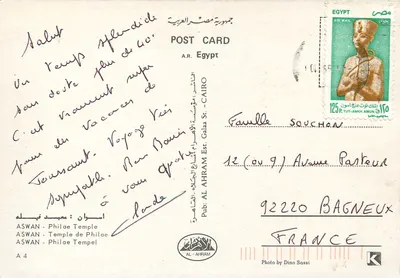 Salut
Un temps splendide
sans doute plus de 40°
C'est vraiment super
pour des vacances de
Toussaint. Voyage très
sympathique. Bons Baisers
à vous quatre
جمهورية مصر العربية
POST CARD
A.R. Egypt
EGYPT
مصر
AIR MAIL
125
١٢٥
TUT-ANKH-AMUN
Famille SOUCHON
12 (ou 9) Avenue Pasteur
92220 BAGNEUX
FRANCE
Pub: AL AHRAM Est. Galaa St. - CAIRO
أسوان : معبد فيله
ASWAN - Philae Temple
ASWAN - Temple de Philae
ASWAN - Philae Tempel
A 4
AL - AHRAM
Photo by Dino Sassi
K